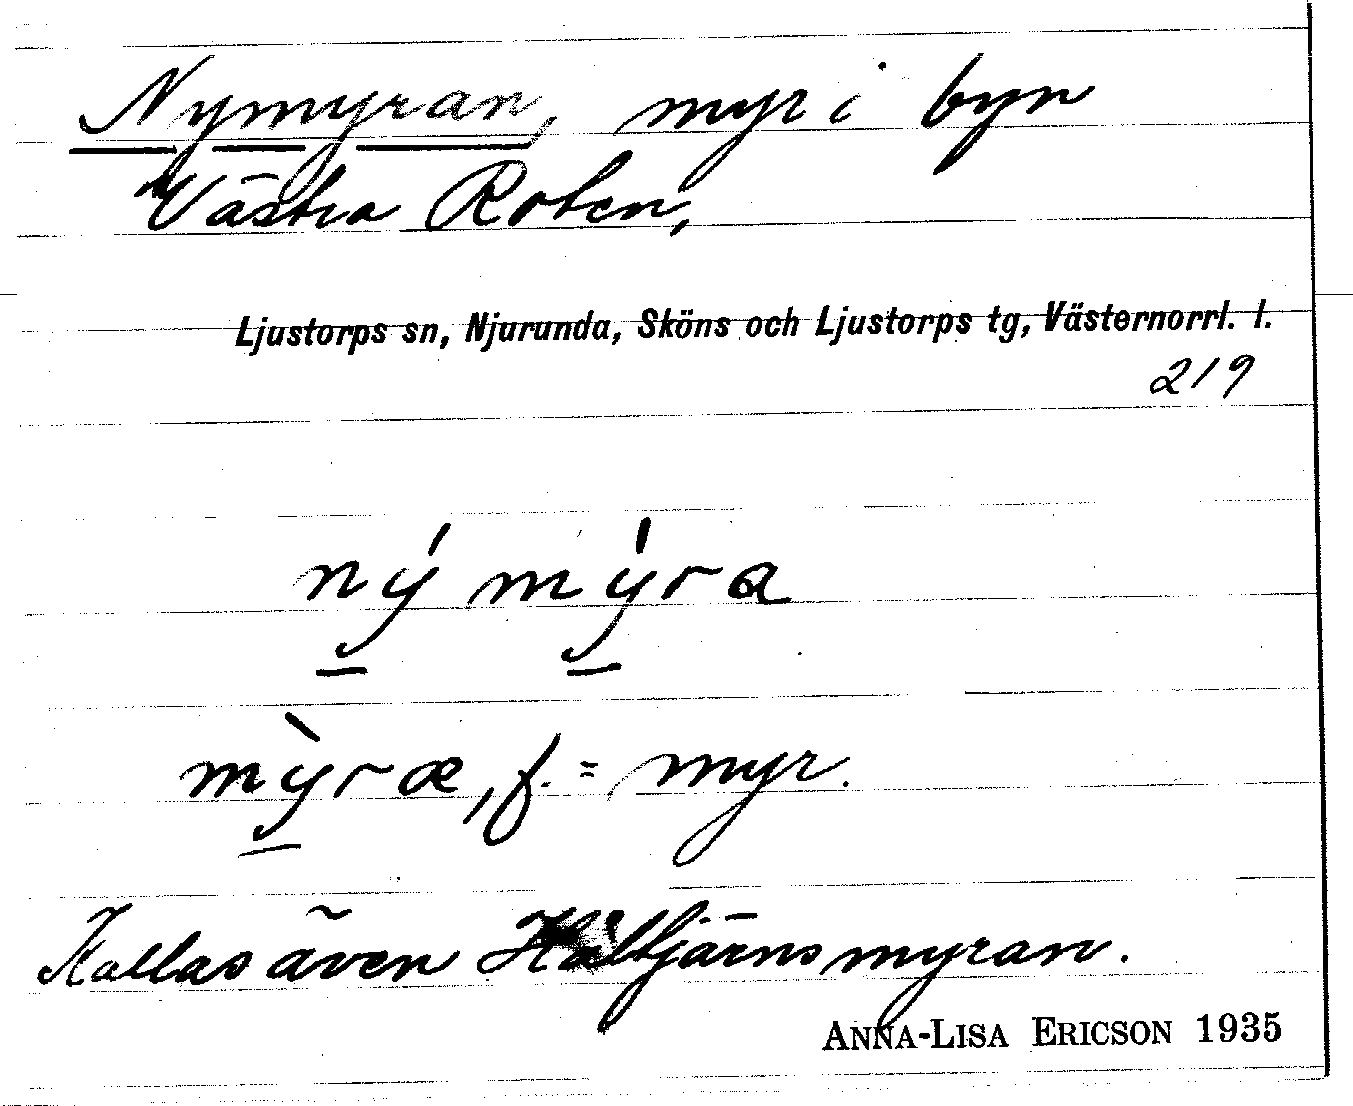 Nymyran, myr i byn
Västra Roten,
Ljustorps sn, Njurunda, Sköns och Ljustorps tg, Västernorrl. l.
219
ný mýra
mỳræ, f. = myr.
Kallas även Håltjärnsmyran.
ANNA-LISA ERICSON 1935